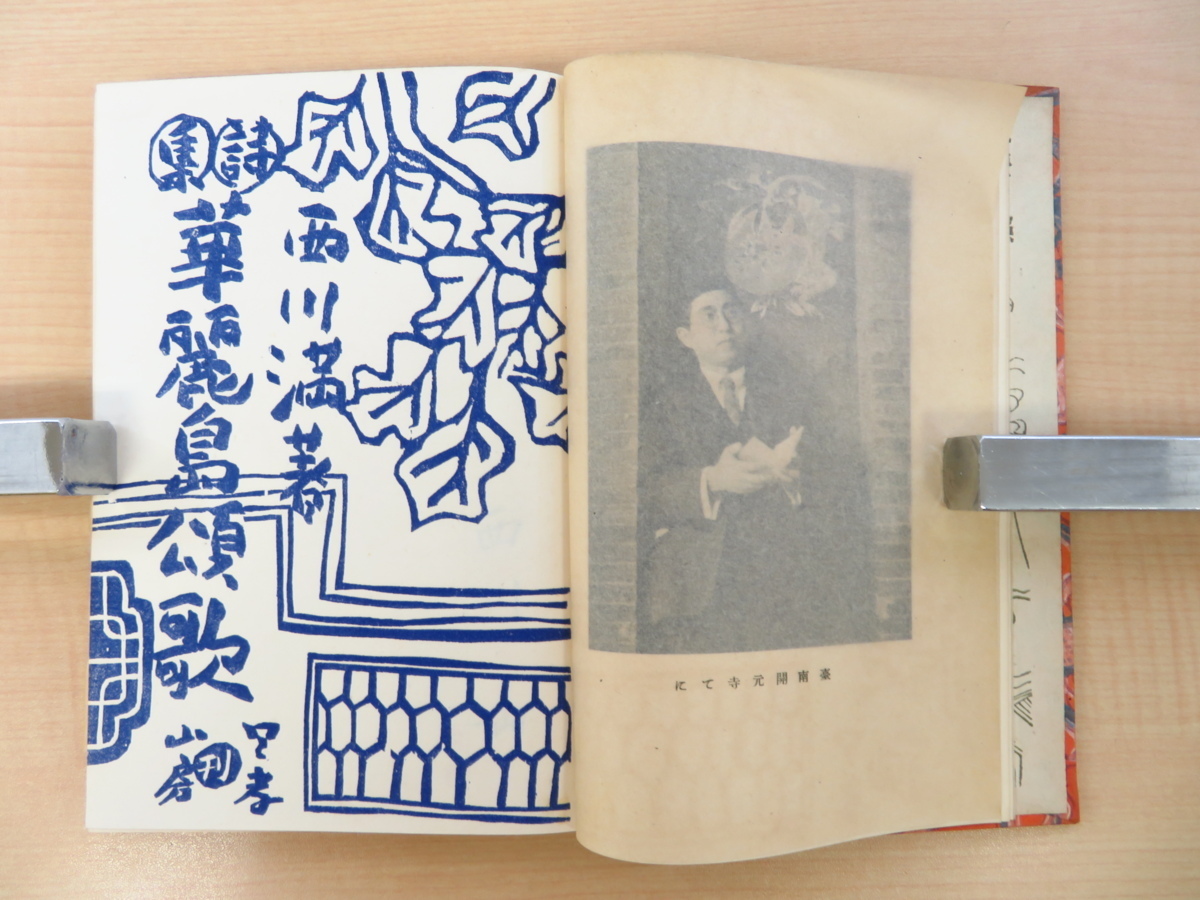 西川満著
詩集
華麗島頌歌
孝
山房
臺南開元寺にて